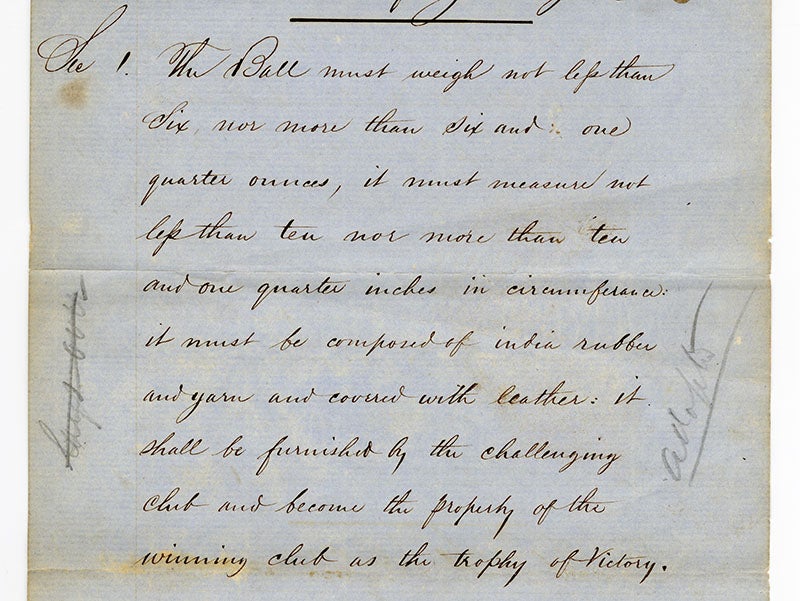 Sec 1. The Ball must weigh not less than
Six, nor more than Six and one
quarter ounces, it must measure not
less than ten nor more than ten
and one quarter inches in circumferance:
it must be composed of india rubber
and yarn and covered with leather: it
shall be furnished by the challenging
club and become the property of the
winning club as the trophy of Victory.
adopted